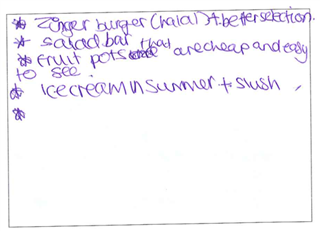 * Zinger burger (halal) + better selection.
* salad bar that
* Fruit pots are cheap and easy
to see.
* Ice cream in summer + slush
*